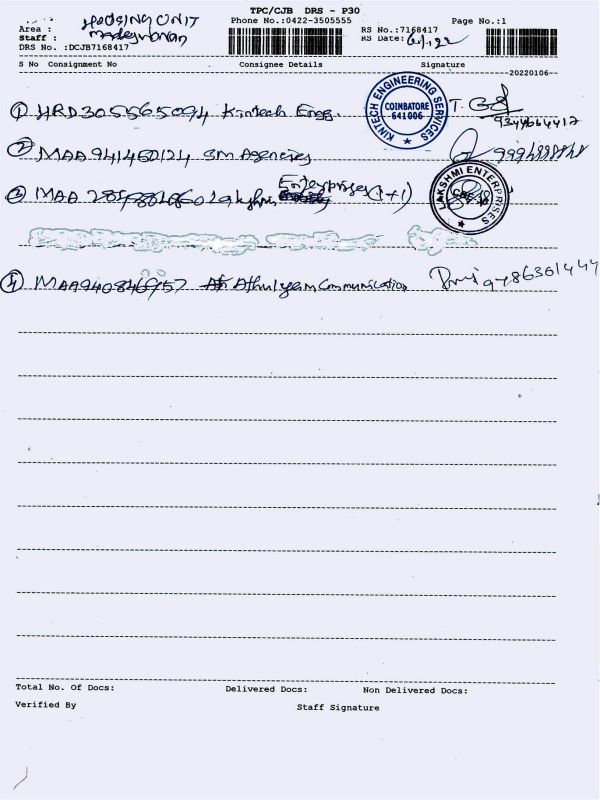 TPC/CJB DRS - P30
Area : HOUSING UNIT Phone No.:0422-3505555 RS No.:7168417 Page No.:1
Staff : RS Date: 6/1/22
DRS No. :DCJB7168417
S No Consignment No Consignee Details Signature
20220106
① HRD305565094 Kintech Engg. T.
KINTECH ENGINEERING SERVICES COIMBATORE 641006 ★
② MAA941460124 SM Agencies
③ MAA Enterprises (1+1)
LAKSHMI ENTERPRISES CBE ★
④ MAA940846957 Athulyam Communication 9786301444
Total No. Of Docs: Delivered Docs: Non Delivered Docs:
Verified By Staff Signature